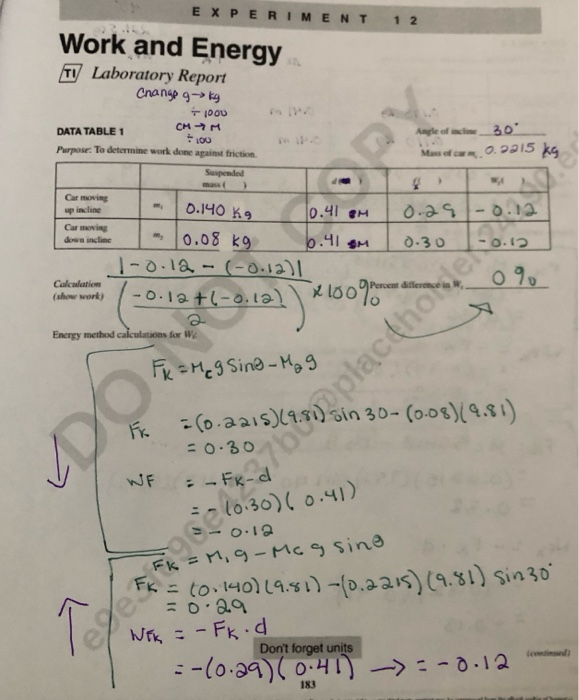 EXPERIMENT 12
Work and Energy
TI Laboratory Report
Change g → kg
÷ 1000
CM → M
÷ 100
DATA TABLE 1
Angle of incline 30°
Purpose: To determine work done against friction.
Mass of car mc 0.2215 kg
Suspended
mass ( )
Car moving
up incline m₁ 0.140 Kg 0.41 M 0.29 -0.12
Car moving
down incline m₂ 0.08 kg 0.41 M 0.30 -0.12
Calculation
(show work)
|-0.12 - (-0.12)|
(-0.12 + (-0.12)
2) × 100%
Percent difference in Wf 0%
Energy method calculations for Wf
FK = Mcg Sinθ - M2g
FK = (0.2215)(9.81) sin 30 - (0.08)(9.81)
= 0.30
WF = - FK - d
= - (0.30)(0.41)
= - 0.12
FK = M1g - Mcg sinθ
FK = (0.140)(9.81) - (0.2215)(9.81) sin30°
= 0.29
WFK = - FK · d
Don't forget units
= -(0.29)(0.41) → = -0.12
(continued)
183
DO NOT COPY